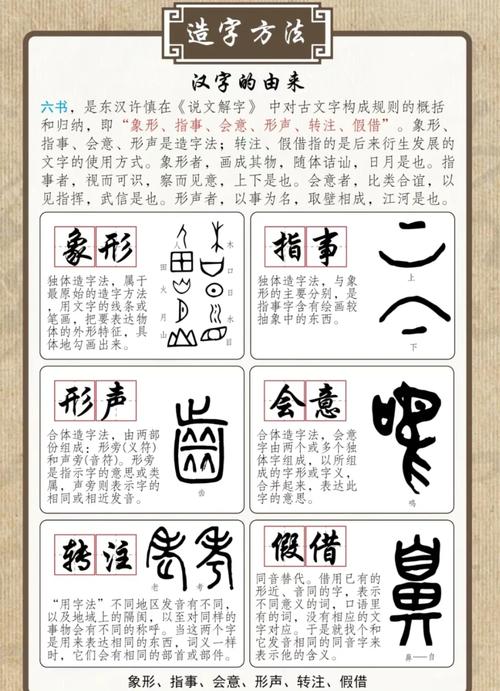 造字方法
汉字的由来
六书，是东汉许慎在《说文解字》 中对古文字构成规则的概括
和归纳，即“象形、指事、会意、形声、转注、假借”。象形、
指事、会意、形声是造字法；转注、假借指的是后来衍生发展的
文字的使用方式。象形者，画成其物，随体诘诎，日月是也。指
事者，视而可识，察而见意，上下是也。会意者，比类合谊，以
见指挥，武信是也。形声者，以事为名，取譬相成，江河是也。
象形
独体造字法，属于
最原始的造字方法
，用文字的线条或
笔画，把要表达物
体的外形特征，具
体地勾画出来。
人
田
火
月
山
木
口
日
水
目
指事
独体造字法，与象
形的主要分别，是
指事字含有绘画较
抽象中的东西。
上
下
形声
合体造字法，由两部
份组成：形旁(义符)
和声旁(音符)。形旁
是指示字的意思或类
属，声旁则表示字的
相同或相近发音。
齿
会意
合体造字法，会意字
由两个或多个独体
字组成，以所组成
的字形或字义，合
并起来，表达此字
的意思。
鸣
转注
老
考
“用字法”不同地区发音有不同，
以及地域上的隔阂，以至对同样的
事物会有不同的称呼。当这两个字
是用来表达相同的东西，词义一样
时，它们会有相同的部首或部件。
假借
同音替代。借用已有的
形近、音同的字，表示
不同意义的词，口语里
有的词，没有相应的文
字对应。于是就找一个和
它发音相同的同音字来
表示他的含义。
鼻——自
象形、指事、会意、形声、转注、假借